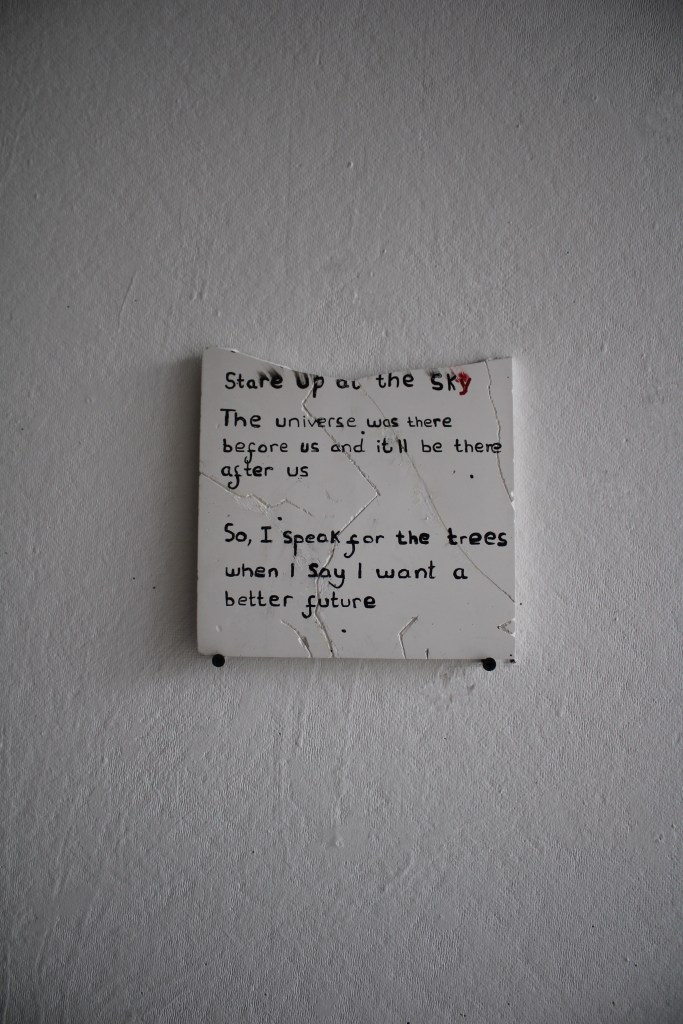 Stare Up at the sky
The universe was there
before us and it'll be there
after us
So, I speak for the trees
when I say I want a
better future